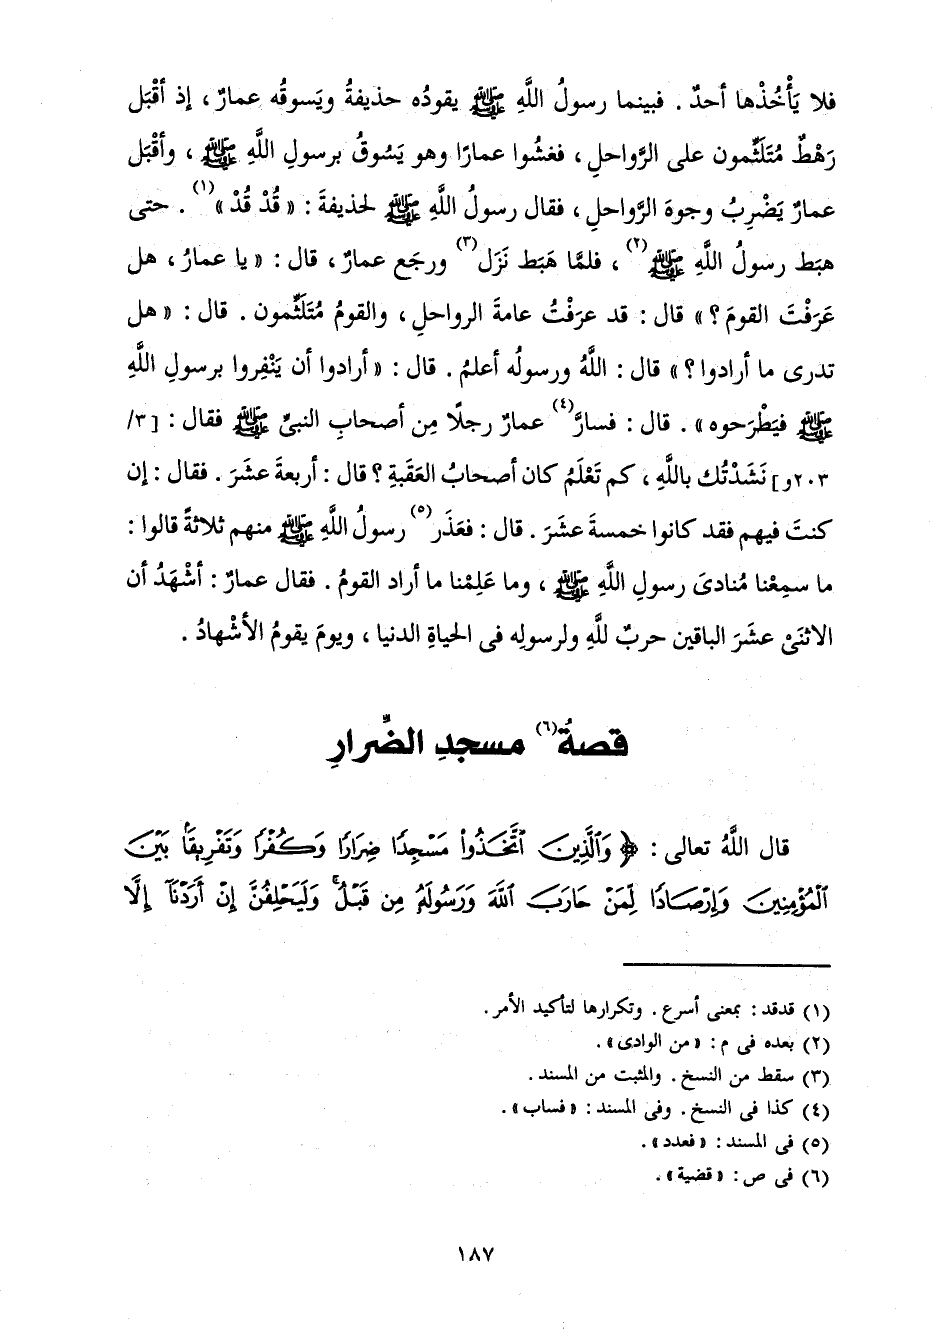 فلا يَأْخُذْها أحدٌ . فبينما رسولُ اللَّهِ ﷺ يقودُه حذيفةُ ويَسوقُه عمارٌ ، إذ أقْبَل
رَهْطٌ مُتَلَثِّمون على الرَّواحلِ ، فغشُوا عمارًا وهو يَسُوقُ برسولِ اللَّهِ ﷺ ، وأقْبَل
عمارٌ يَضْرِبُ وجوهَ الرَّواحلِ ، فقال رسولُ اللَّهِ ﷺ لحذيفةَ : « قُدْ قُدْ »(١) . حتى
هبَط رسولُ اللَّهِ ﷺ(٢) ، فلمَّا هَبَط نَزَل(٣) ورجَع عمارٌ ، قال : « يا عمارُ ، هل
عَرَفْتَ القومَ ؟ » قال : قد عرَفْتُ عامةَ الرواحلِ ، والقومُ مُتَلَثِّمون . قال : « هل
تدرى ما أرادوا ؟ » قال : اللَّهُ ورسولُه أعلمُ . قال : « أرادوا أن يَنْفِروا برسولِ اللَّهِ
ﷺ فيَطْرَحوه » . قال : فسارَّ(٤) عمارٌ رجلًا مِن أصحابِ النبىِّ ﷺ فقال : [٣/
٢٠٣و] نَشَدْتُك باللَّهِ ، كم تَعْلَمُ كان أصحابُ العَقَبةِ ؟ قال : أربعةَ عشَرَ . فقال : إن
كنتَ فيهم فقد كانوا خمسةَ عشَرَ . قال : فعَذَر(٥) رسولُ اللَّهِ ﷺ منهم ثلاثةً قالوا :
ما سمِعْنا مُنادىَ رسولِ اللَّهِ ﷺ ، وما عَلِمْنا ما أراد القومُ . فقال عمارٌ : أشْهَدُ أن
الاثنَىْ عشَرَ الباقين حربٌ للَّهِ ولرسولِه فى الحياةِ الدنيا ، ويومَ يقومُ الأشْهادُ .
قصةُ(٦) مسجدِ الضِّرارِ
قال اللَّهُ تعالى : ﴿ وَٱلَّذِينَ ٱتَّخَذُواْ مَسْجِدًا ضِرَارًا وَكُفْرًا وَتَفْرِيقًۢا بَيْنَ
ٱلْمُؤْمِنِينَ وَإِرْصَادًا لِّمَنْ حَارَبَ ٱللَّهَ وَرَسُولَهُۥ مِن قَبْلُ ۚ وَلَيَحْلِفُنَّ إِنْ أَرَدْنَآ إِلَّا
(١) قدقد : بمعنى أسرع . وتكرارها لتأكيد الأمر .
(٢) بعده فى م : « من الوادى » .
(٣) سقط من النسخ . والمثبت من المسند .
(٤) كذا فى النسخ . وفى المسند : « فساب » .
(٥) فى المسند : « فعدد » .
(٦) فى ص : « قضية » .
١٨٧